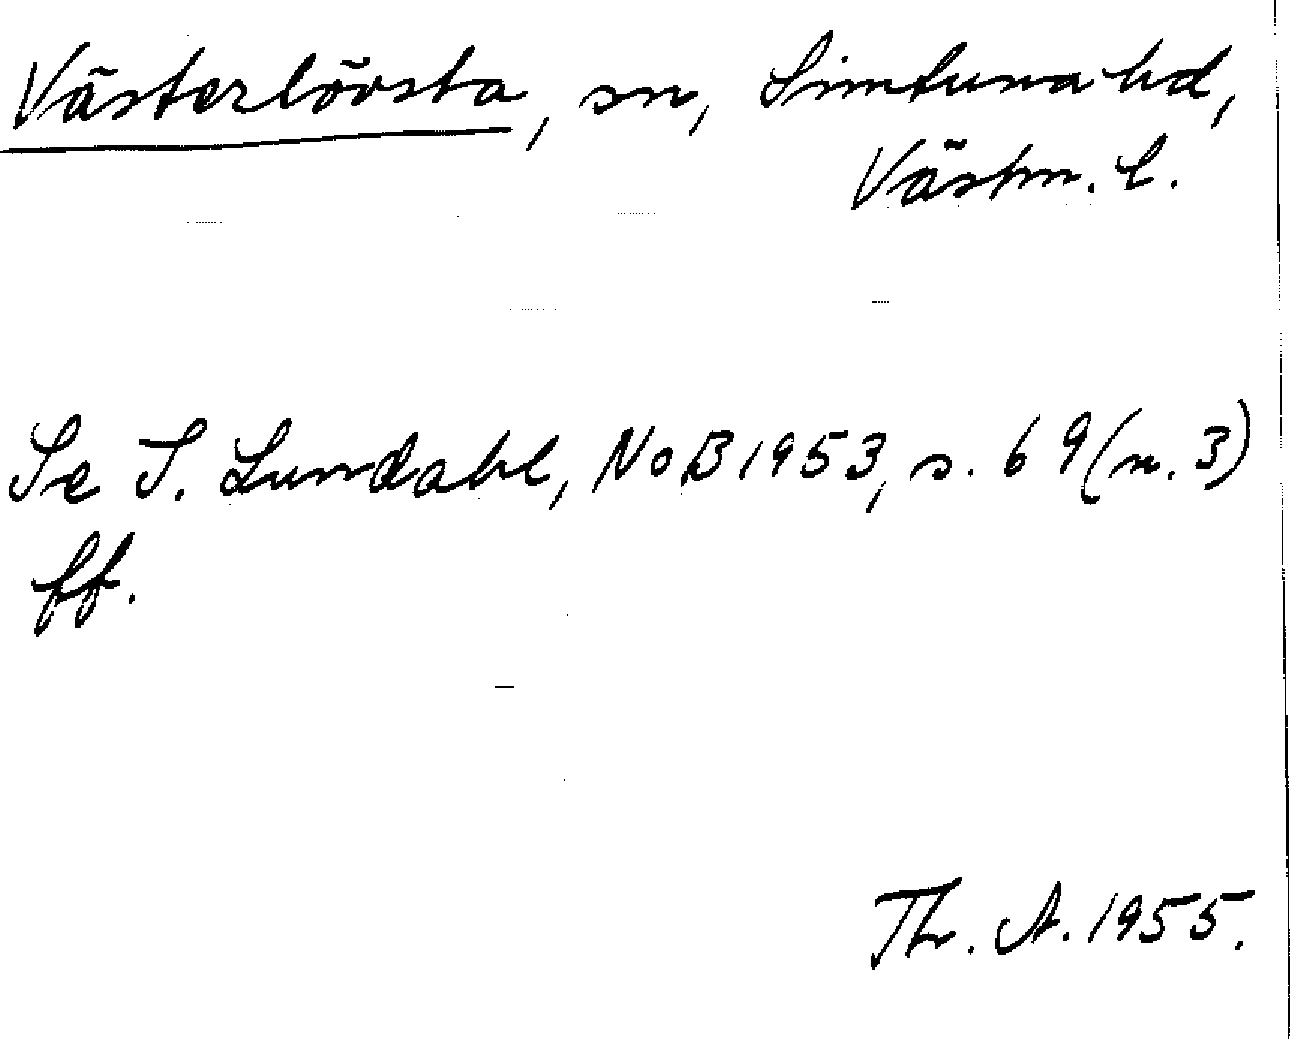 Västerlövsta, sn, Simtuna hd,
Västm. l.
Se I. Lundahl, NoB 1953, s. 69 (n. 3)
ff.
Th. A. 1955.